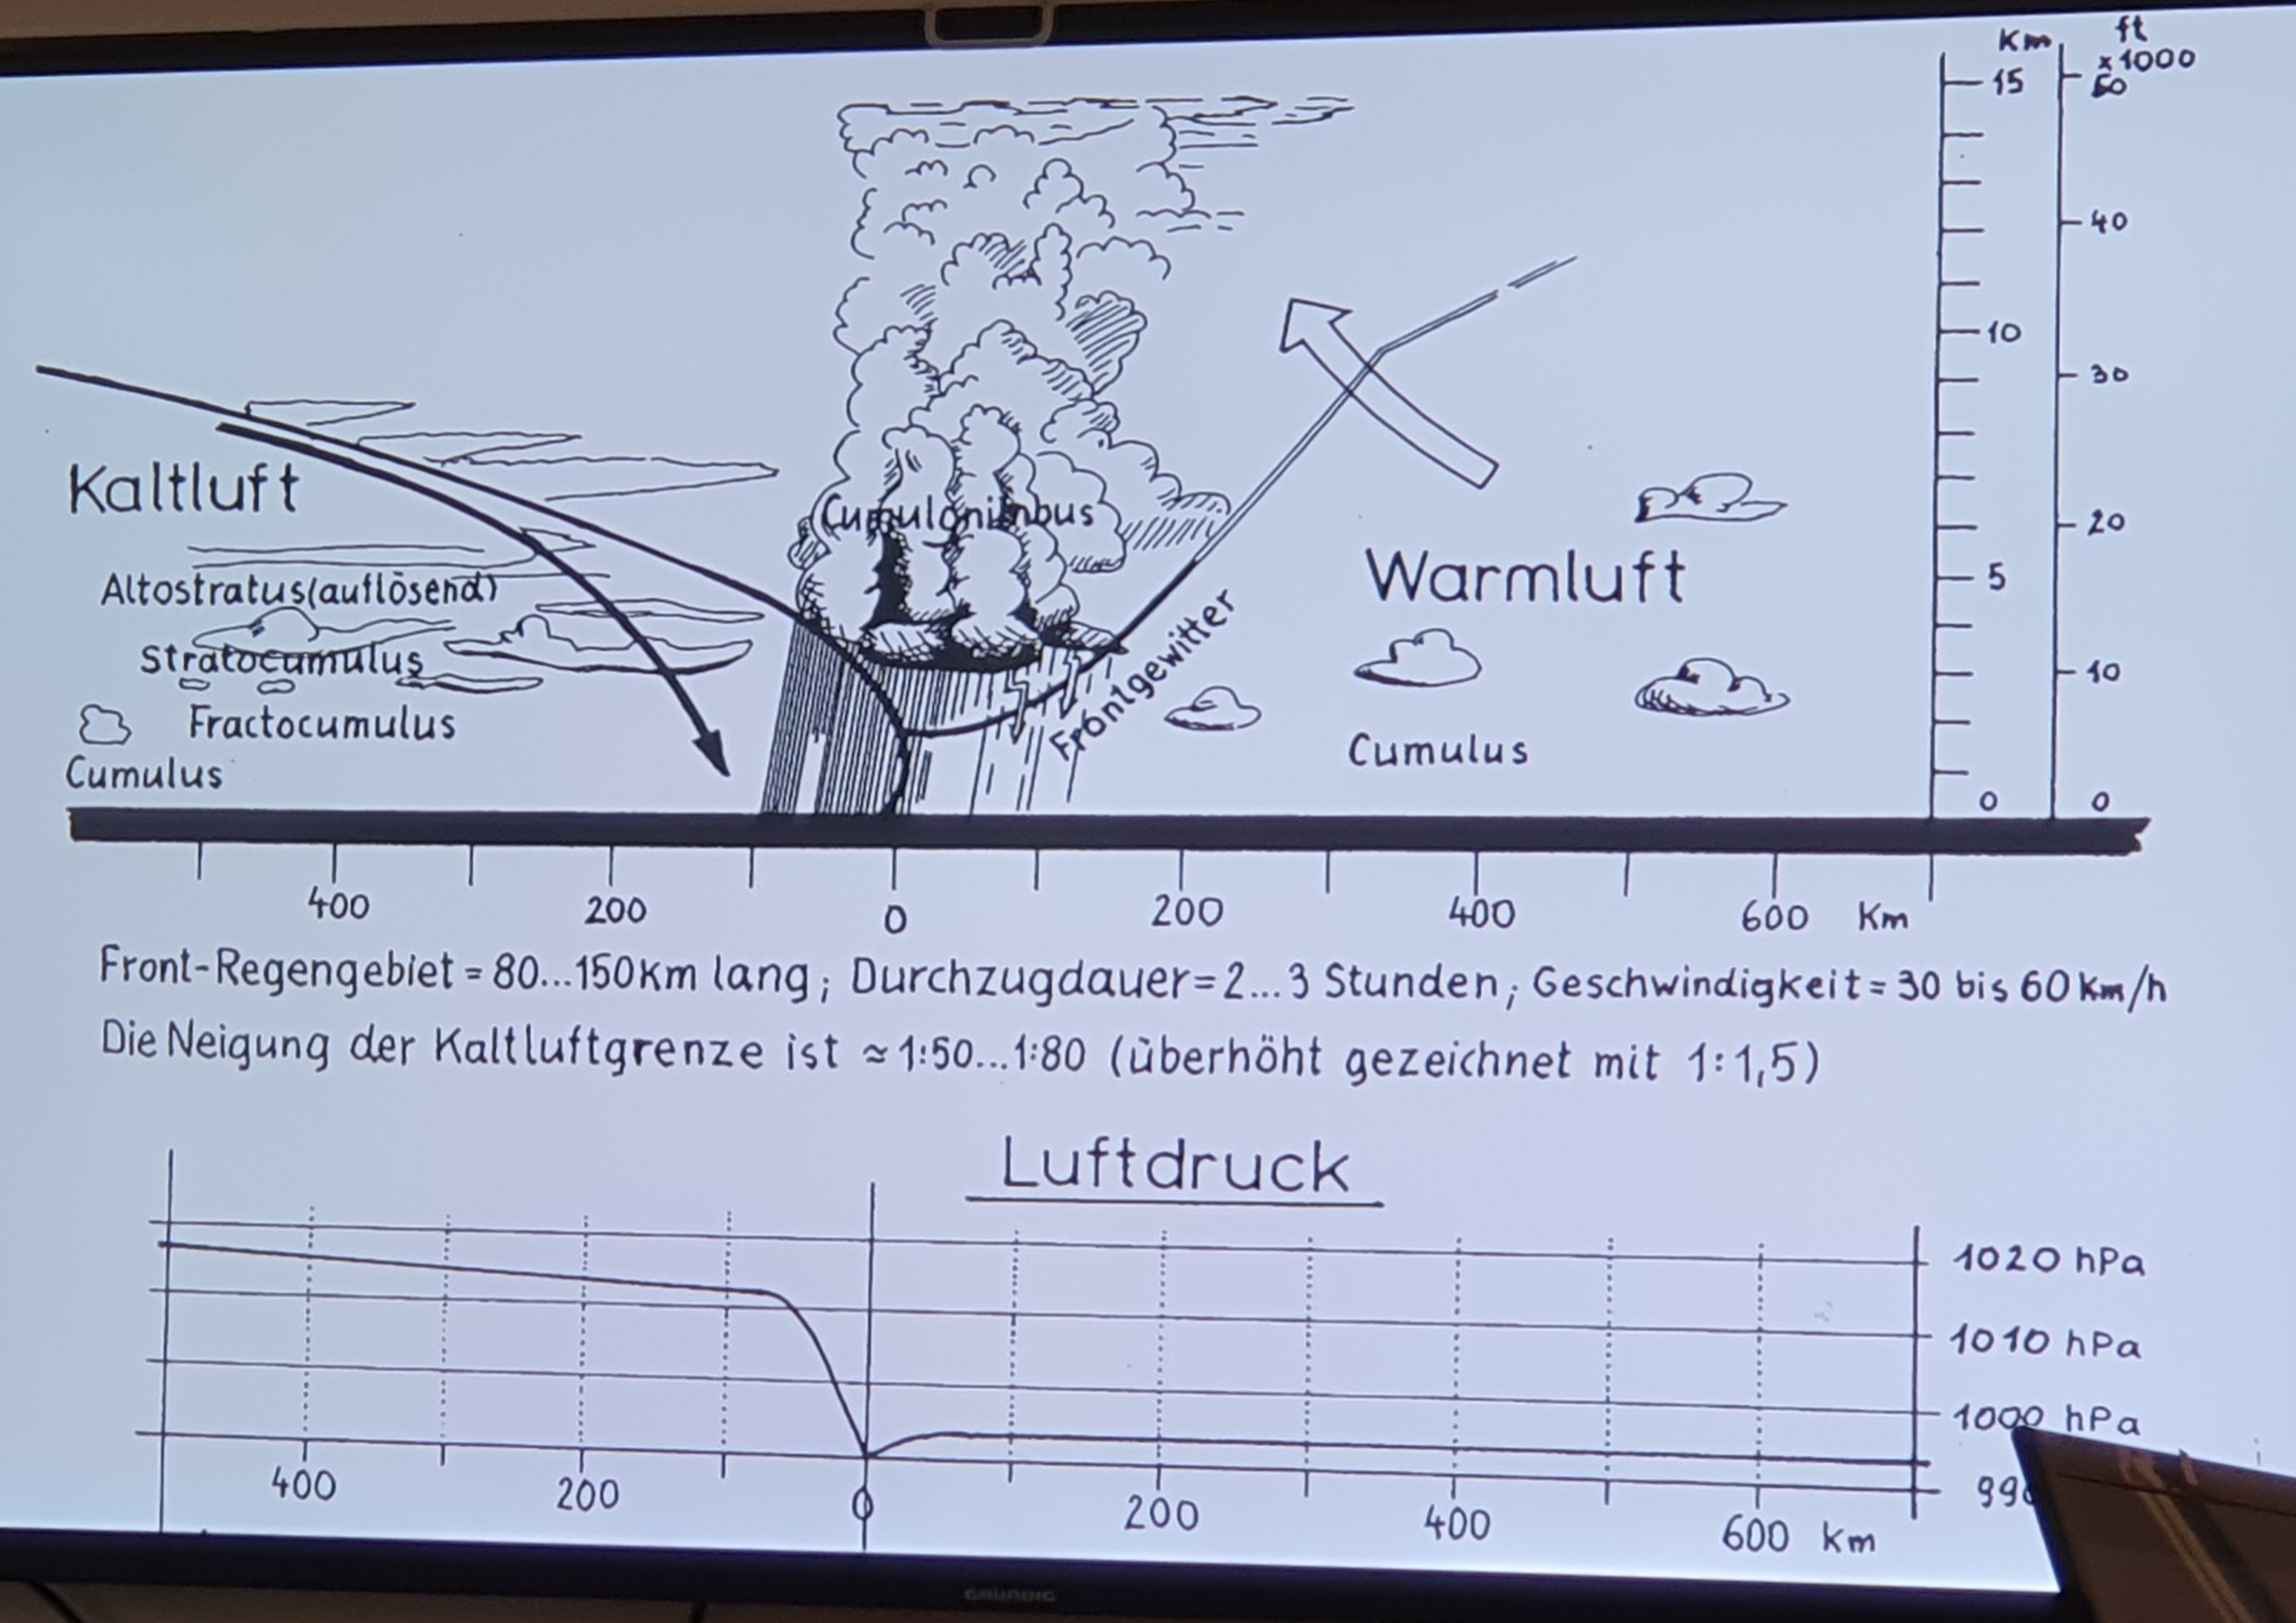 Km ft
x1000
15 50
40
10 30
20
5
10
0 0
Kaltluft
Cumulonimbus
Warmluft
Altostratus (auflösend)
Stratocumulus
Frontgewitter
Fractocumulus
Cumulus
Cumulus
400 200 0 200 400 600 Km
Front-Regengebiet = 80...150 Km lang; Durchzugdauer = 2...3 Stunden; Geschwindigkeit = 30 bis 60 Km/h
Die Neigung der Kaltluftgrenze ist ≈ 1:50...1:80 (überhöht gezeichnet mit 1:1,5)
Luftdruck
1020 hPa
1010 hPa
1000 hPa
400 200 0 200 400 600 Km
GRUNDIG